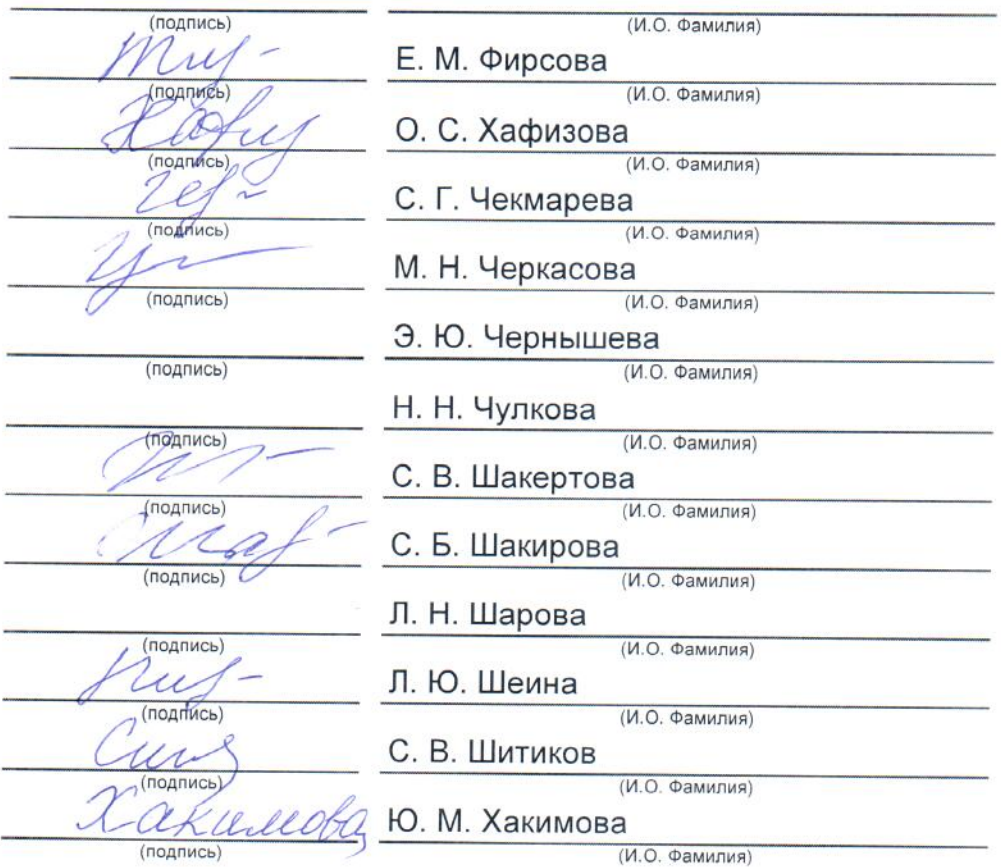 (подпись) (И.О. Фамилия)
Е. М. Фирсова
(подпись) (И.О. Фамилия)
О. С. Хафизова
(подпись) (И.О. Фамилия)
С. Г. Чекмарева
(подпись) (И.О. Фамилия)
М. Н. Черкасова
(подпись) (И.О. Фамилия)
Э. Ю. Чернышева
(подпись) (И.О. Фамилия)
Н. Н. Чулкова
(подпись) (И.О. Фамилия)
С. В. Шакертова
(подпись) (И.О. Фамилия)
С. Б. Шакирова
(подпись) (И.О. Фамилия)
Л. Н. Шарова
(подпись) (И.О. Фамилия)
Л. Ю. Шеина
(подпись) (И.О. Фамилия)
С. В. Шитиков
(подпись) (И.О. Фамилия)
Хакимова Ю. М. Хакимова
(подпись) (И.О. Фамилия)